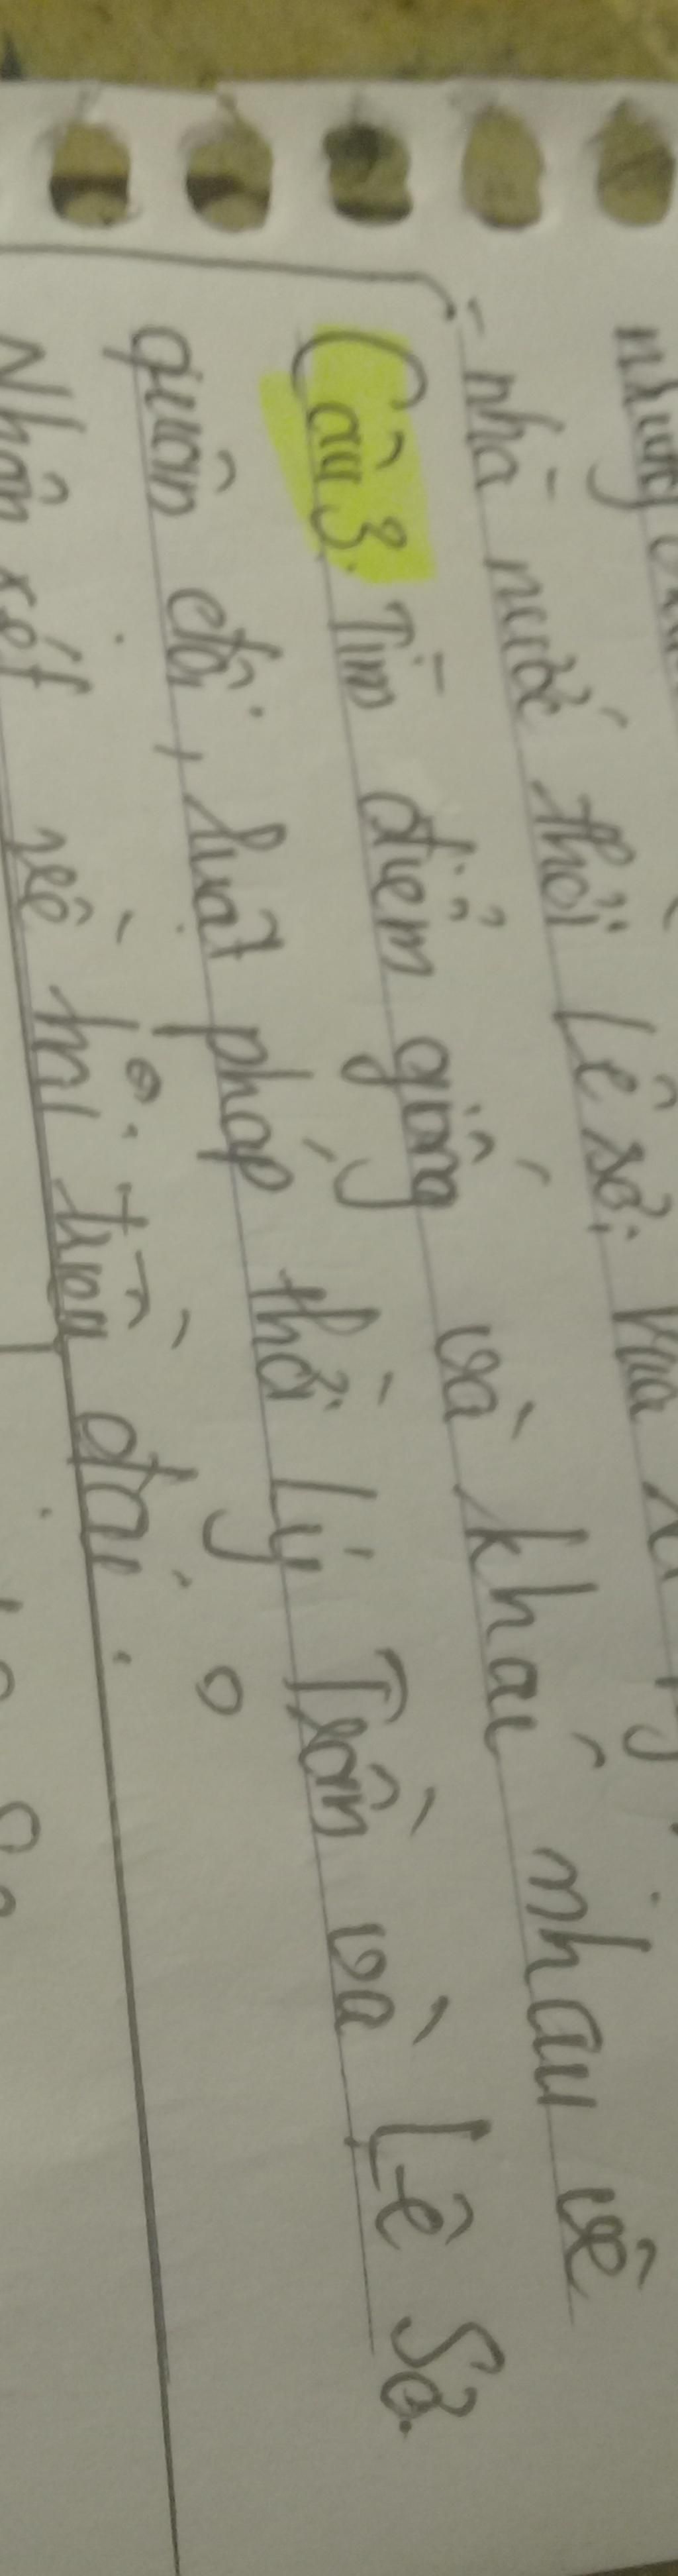 những
- nhà nước thời Lê sơ: Vua
Câu 3. Tìm điểm giống và khác nhau về
quân đội, luật pháp thời Lý Trần và Lê Sơ.
Nhận xét về hai triều đại.